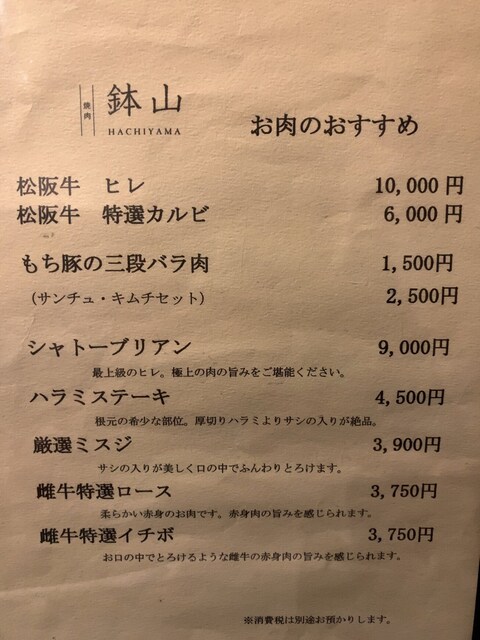 焼肉 鉢山
HACHIYAMA
お肉のおすすめ
松阪牛 ヒレ 10,000円
松阪牛 特選カルビ 6,000円
もち豚の三段バラ肉 1,500円
(サンチュ・キムチセット) 2,500円
シャトーブリアン 9,000円
最上級のヒレ。極上の肉の旨みをご堪能ください。
ハラミステーキ 4,500円
根元の希少な部位。厚切りハラミよりサシの入りが絶品。
厳選ミスジ 3,900円
サシの入りが美しく口の中でふんわりとろけます。
雌牛特選ロース 3,750円
柔らかい赤身のお肉です。赤身肉の旨みを感じられます。
雌牛特選イチボ 3,750円
お口の中でとろけるような雌牛の赤身肉の旨みを感じられます。
※消費税は別途お預かりします。